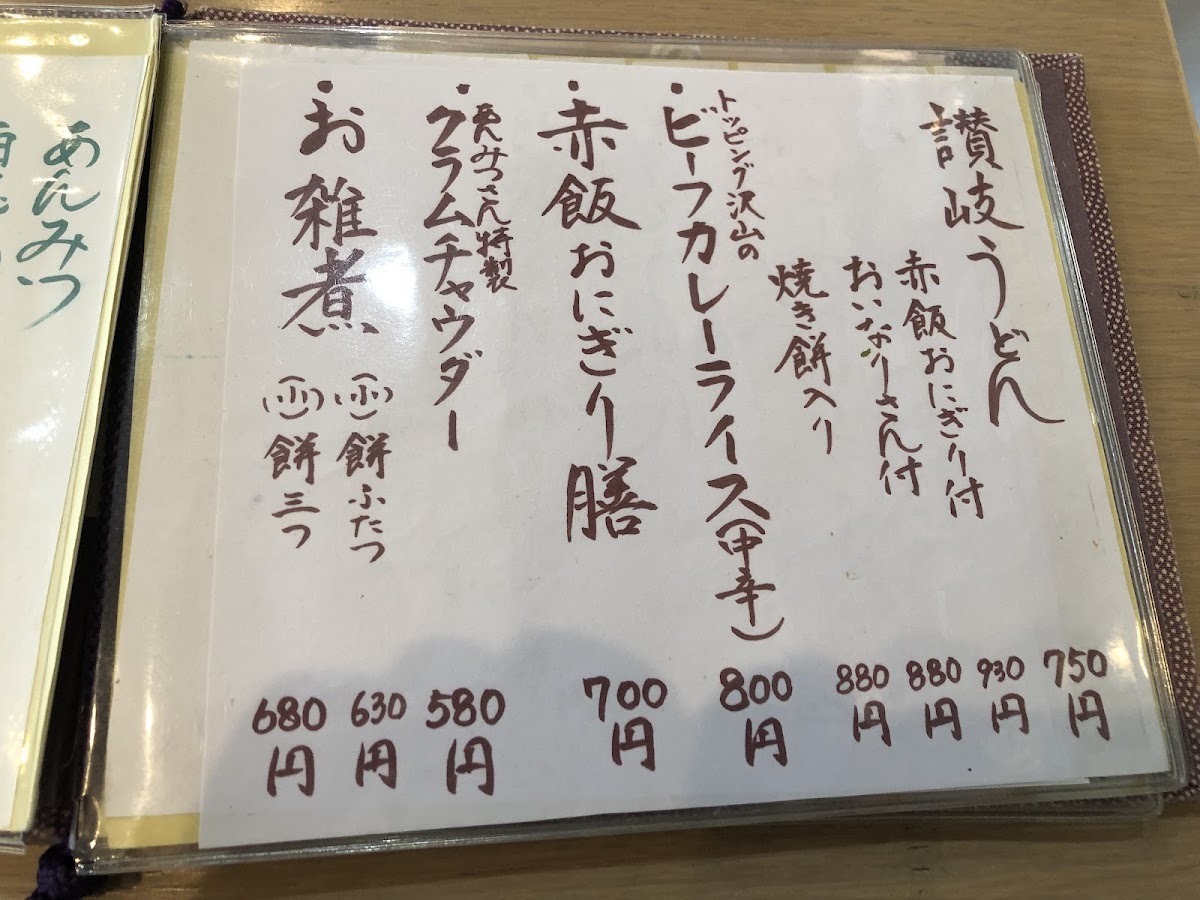 讃岐うどん 750円
赤飯おにぎり付 930円
おいなりさん付 880円
焼き餅入り 880円
トッピング沢山の
・ビーフカレーライス(中辛) 800円
・赤飯おにぎり膳 700円
あんみつさん特製
・クラムチャウダー 580円
・お雑煮 (小) 餅ふたつ 630円
(小) 餅三つ 680円
あんみつ